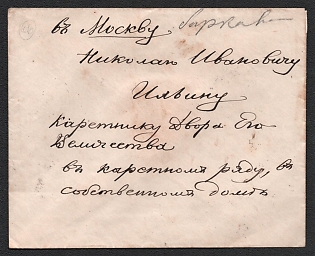 въ Москву
Николаю Ивановичу
Ильину
Каретнику Двора Его
Величества
въ каретномъ ряду, въ
собственномъ домѣ